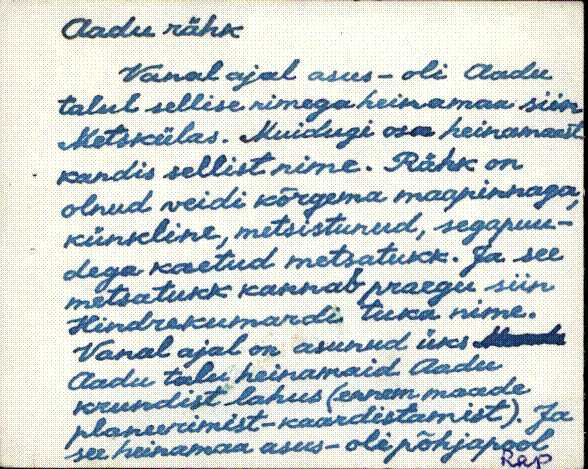 Aadu rähk
Vanal ajal asus - oli Aadu
talul sellise nimega heinamaa siin
Metskülas. Muidugi osa heinamaast
kandis sellist nime. Rähk on
olnud veidi kõrgema maapinnaga,
künkline, metsistunud, segapuu-
dega kaetud metsatukk. Ja see
metsatukk kannab praegu siin
Hindrekumardi tuka nime.
Vanal ajal on asunud üks
Aadu talu heinamaid Aadu
krundist lahus (ennem maade
planeerimist-kaardistamist). Ja
see heinamaa asus - oli põhjapool